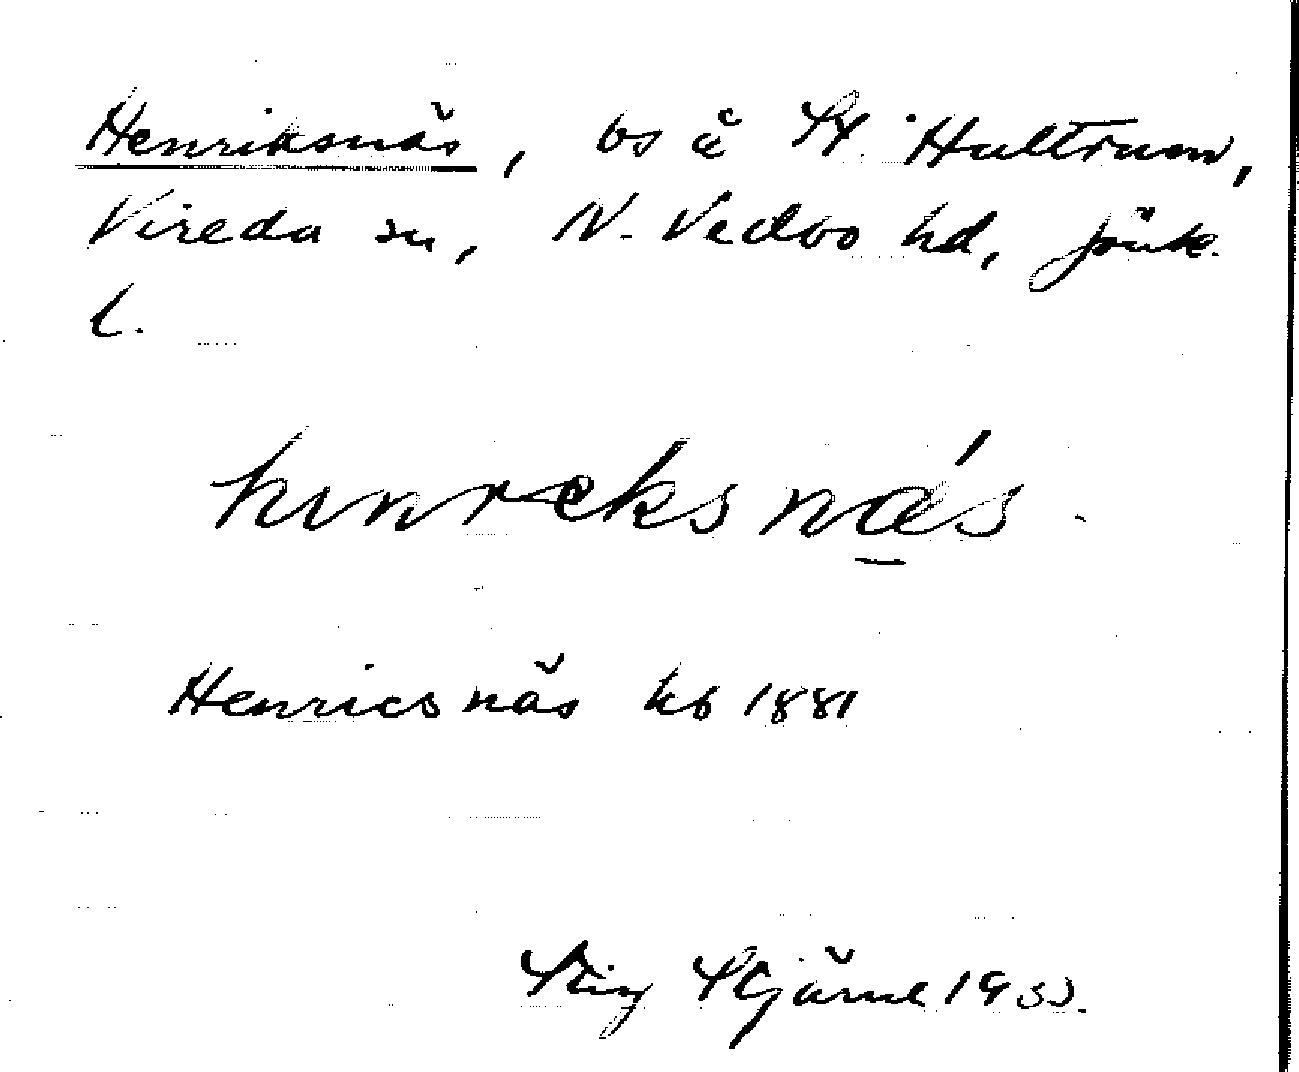 Henriksnäs, bs å St. Hultrum,
Vireda sn, N. Vedbo hd, Jönk.
l.
hınreksnás.
Henricsnäs kb 1881
Stig Stjärne 1933.